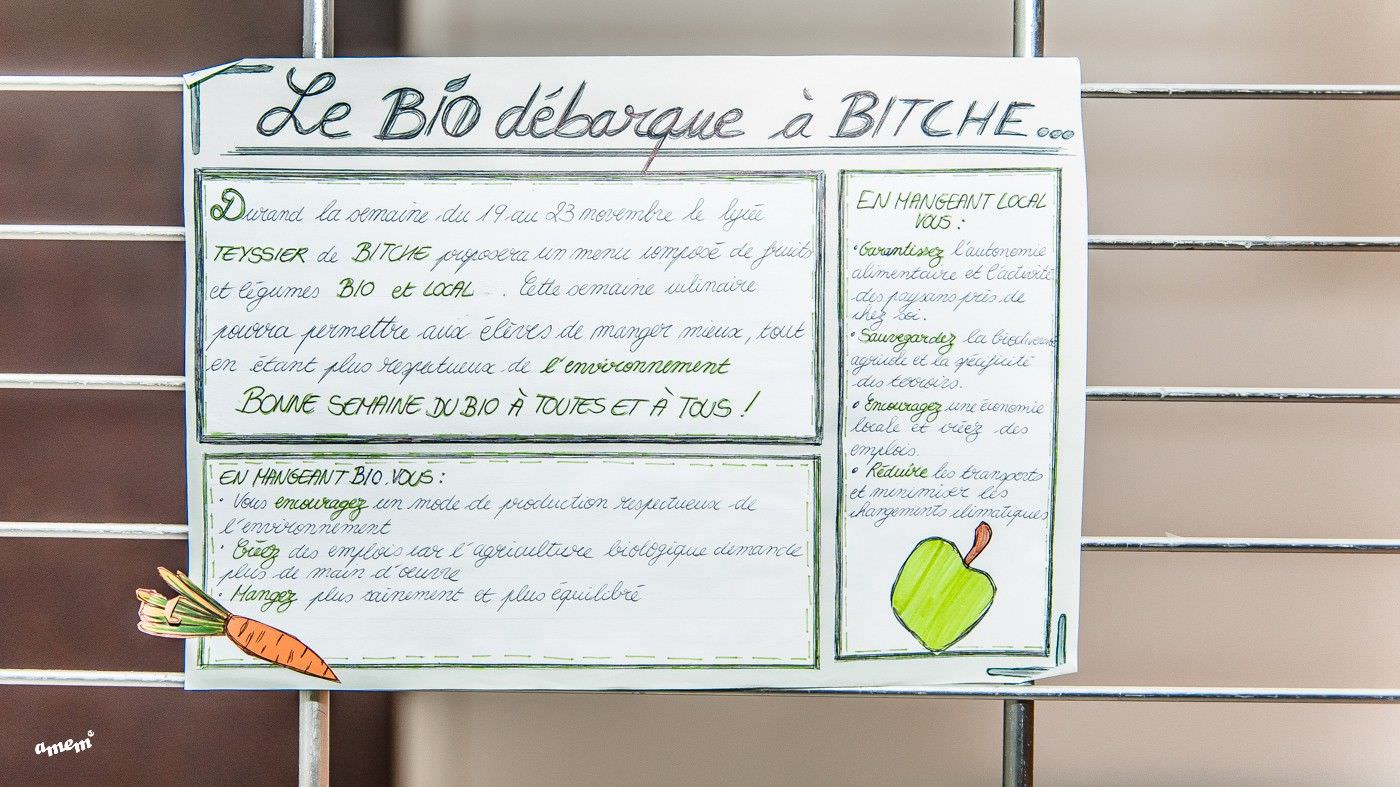 Le BIO débarque à BITCHE...
Durand la semaine du 19 au 23 novembre le lycée
TEYSSIER de BITCHE proposera un menu composé de fruits
et légumes BIO et LOCAL . Cette semaine culinaire
pourra permettre aux élèves de manger mieux, tout
en étant plus respetueux de l'environnement
BONNE SEMAINE DU BIO À TOUTES ET À TOUS !
EN MANGEANT BIO.VOUS :
• Vous encouragez un mode de production respectueux de
l'environnement
• Créez des emplois car l'agriculture biologique demande
plus de main d'oeuvre
• Mangez plus sainement et plus équilibré
EN MANGEANT LOCAL
VOUS :
• Garantissez l'autonomie
alimentaire et l'activité
des paysans près de
chez soi.
• Sauvegardez la biodiversité
agricole et la spécificité
des terroirs.
• Encouragez une économie
locale et créez des
emplois.
• Réduire les transports
et minimiser les
changements climatiques
ameme